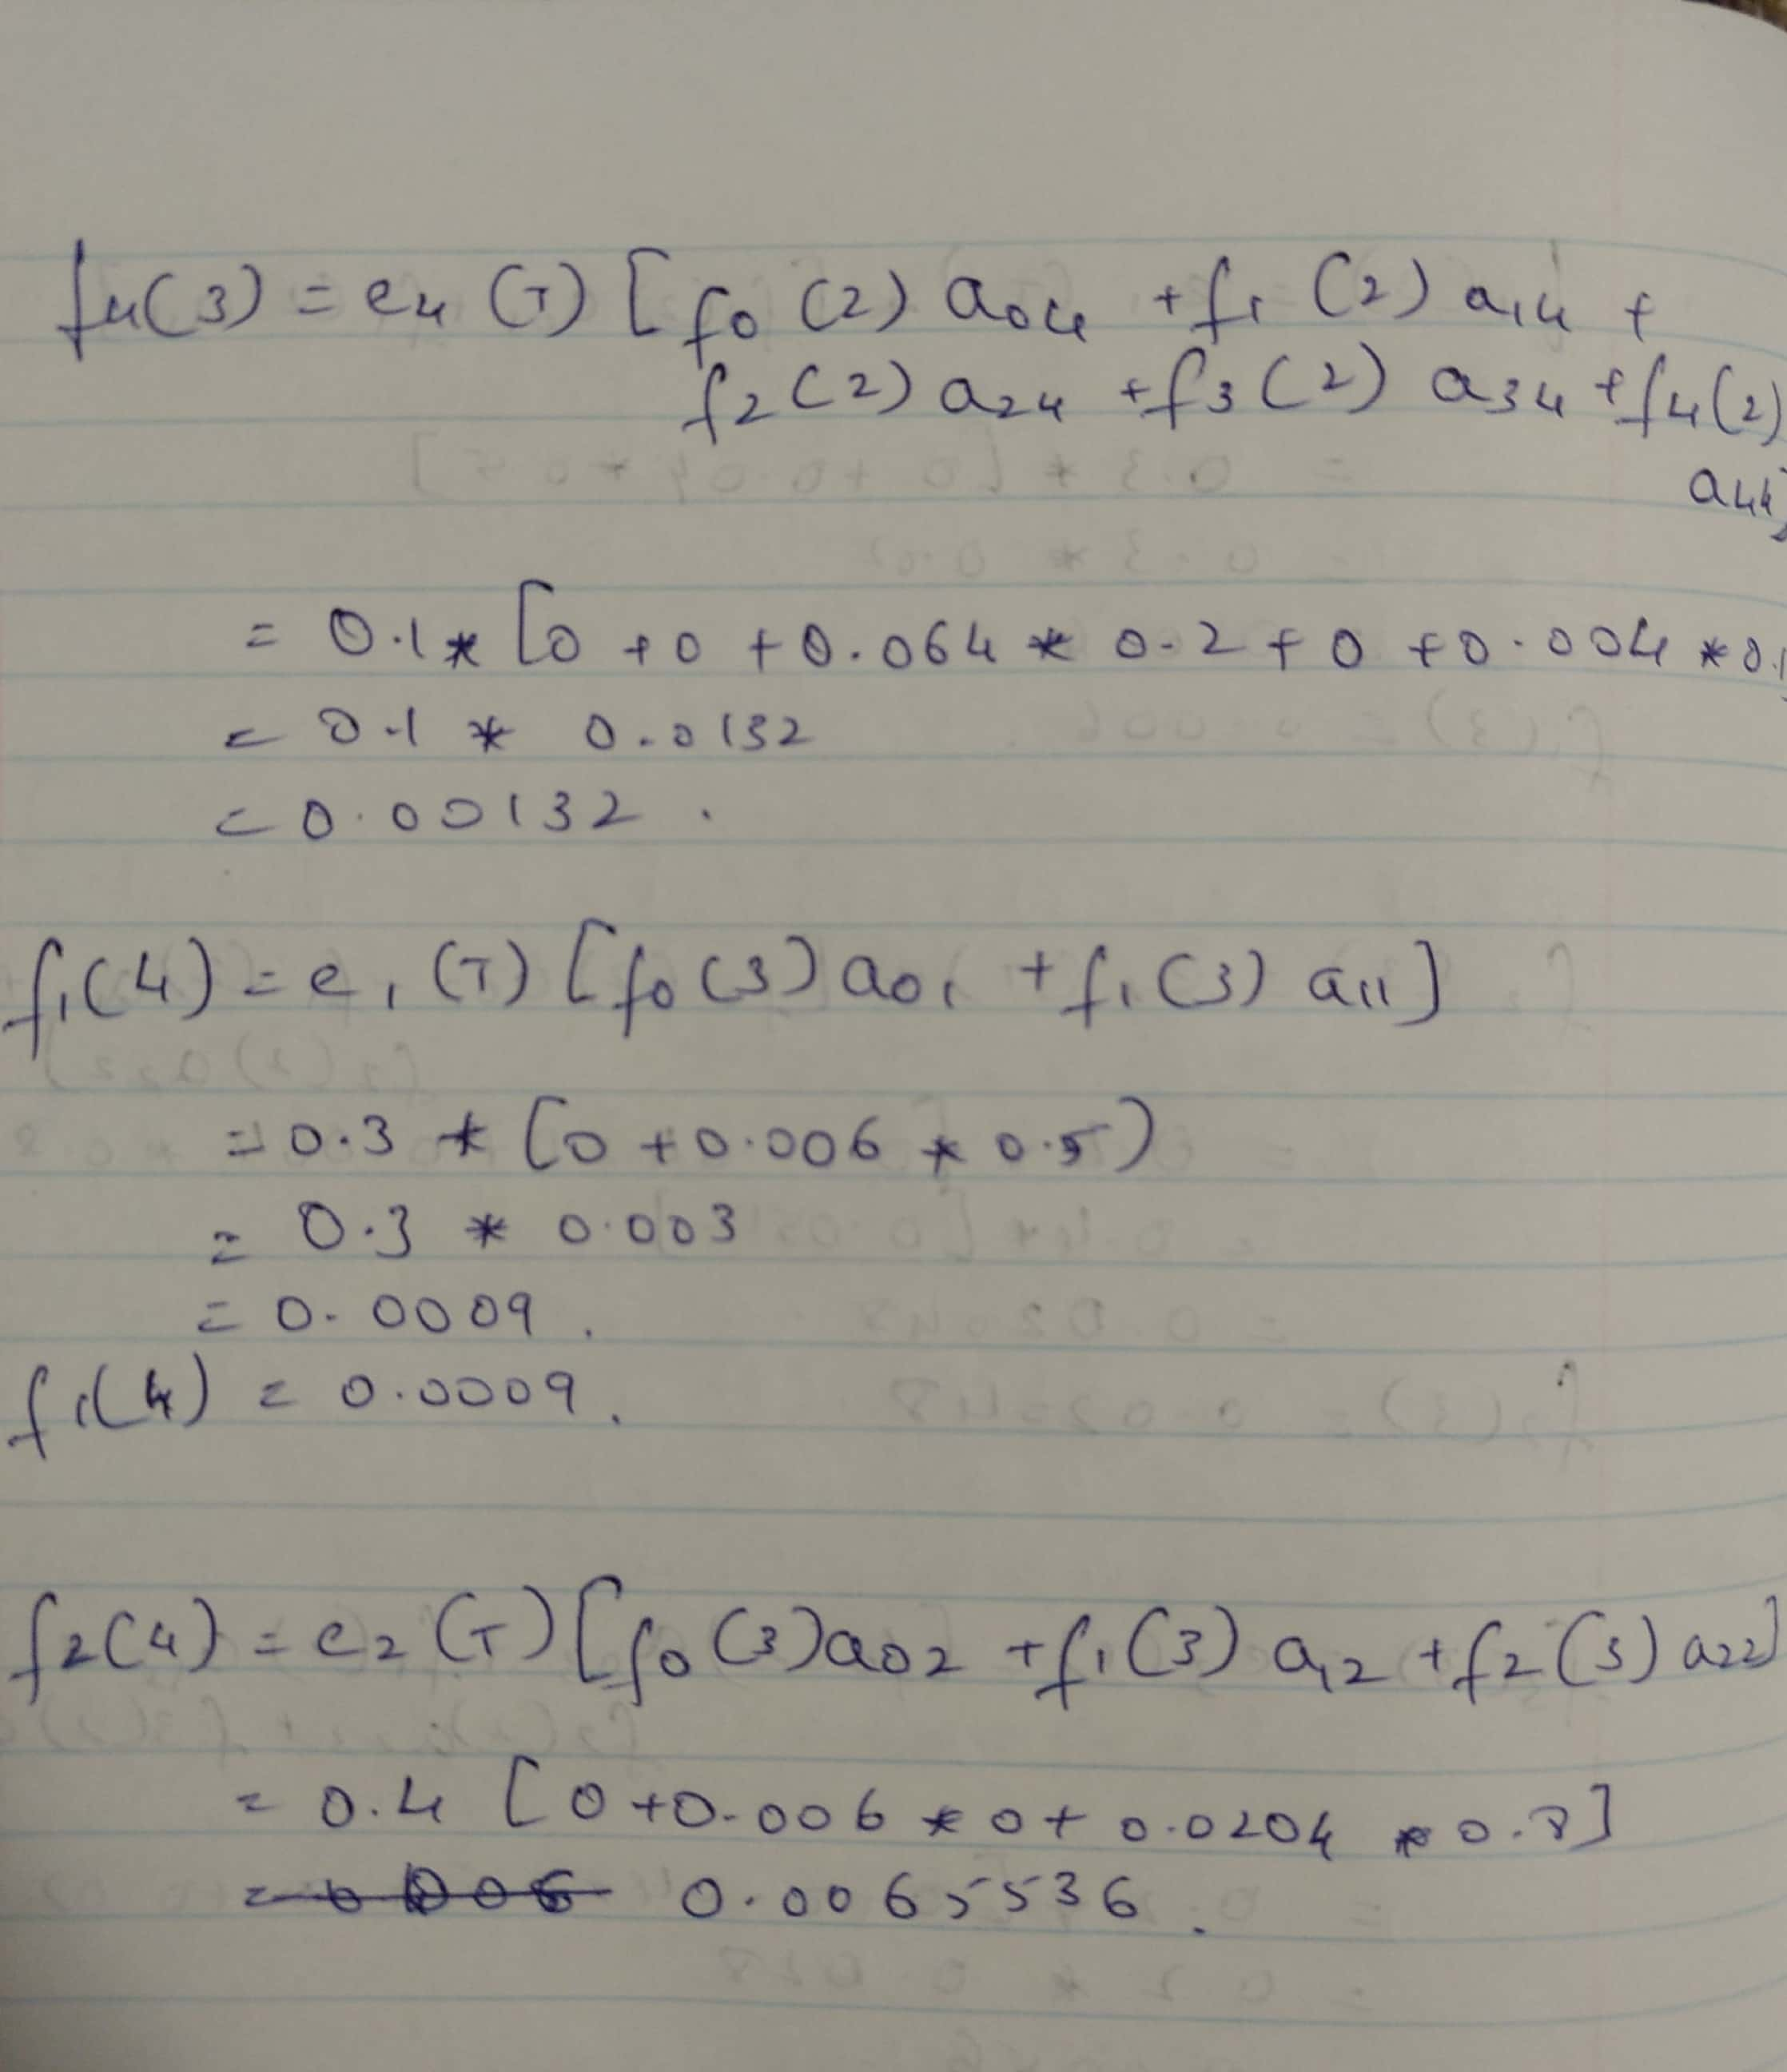 f4(3) = e4 (T) [ f0 (2) a04 + f1 (2) a14 +
f2 (2) a24 + f3 (2) a34 + f4(2)
a44]
= 0.1 * [0 + 0 + 0.064 * 0.2 + 0 + 0.004 * 0.1
= 0.1 * 0.0132
= 0.00132 .
f1(4) = e1 (T) [ f0 (3) a01 + f1(3) a11]
= 0.3 * [0 + 0.006 * 0.5)
= 0.3 * 0.003
= 0.0009 .
f1(4) = 0.0009 .
f2(4) = e2 (T) [f0 (3) a02 + f1 (3) a12 + f2 (3) a22]
= 0.4 [0 + 0.006 * 0 + 0.0204 * 0.8]
= 0.0065536 .